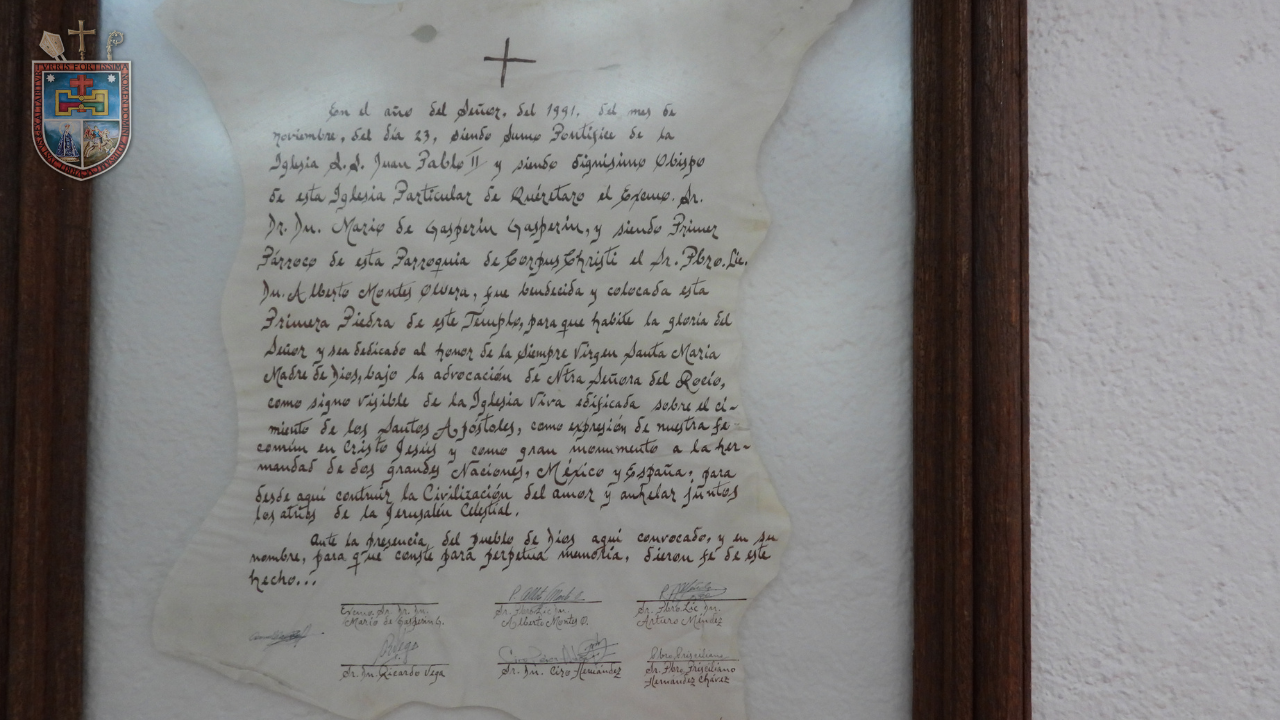 En el año del Señor. del 1991. del mes de
noviembre, del día 23, siendo Sumo Pontífice de la
Iglesia S.S. Juan Pablo II y siendo dignísimo Obispo
de esta Iglesia Particular de Querétaro el Excmo. Sr.
Dr. Dn. Mario de Gasperín Gasperín, y siendo Primer
Párroco de esta Parroquia de Corpus Christi el Sr. Pbro. Lic.
Dn. Alberto Montes Olvera, fue bendecida y colocada esta
Primera Piedra de este Templo, para que habite la gloria del
Señor y sea dedicado al honor de la siempre Virgen Santa María
Madre de Dios, bajo la advocación de Ntra Señora del Rocío,
como signo visible de la Iglesia Viva edificada sobre el ci-
miento de los Santos Apóstoles, como expresión de nuestra fe
común en Cristo Jesús y como gran monumento a la her-
mandad de dos grandes Naciones, México y España; para
desde aquí contruir la Civilización del amor y anhelar juntos
los atrios de la Jerusalén Celestial.
Ante la presencia del pueblo de Dios aquí convocado, y en su
nombre, para que conste para perpetua memoria, dieron fe de este
hecho...
Excmo Sr. Dr. Dn.
Mario de Gasperín G.
Sr. Pbro. Lic. Dn.
Alberto Montes O.
Sr. Pbro Lic Dn.
Arturo Méndez
Sr. Dn. Ricardo Vega
Sr. Dn. Ciro Hernández
Pbro. Prisciliano
Sr. Pbro Prisciliano
Hernández Chávez